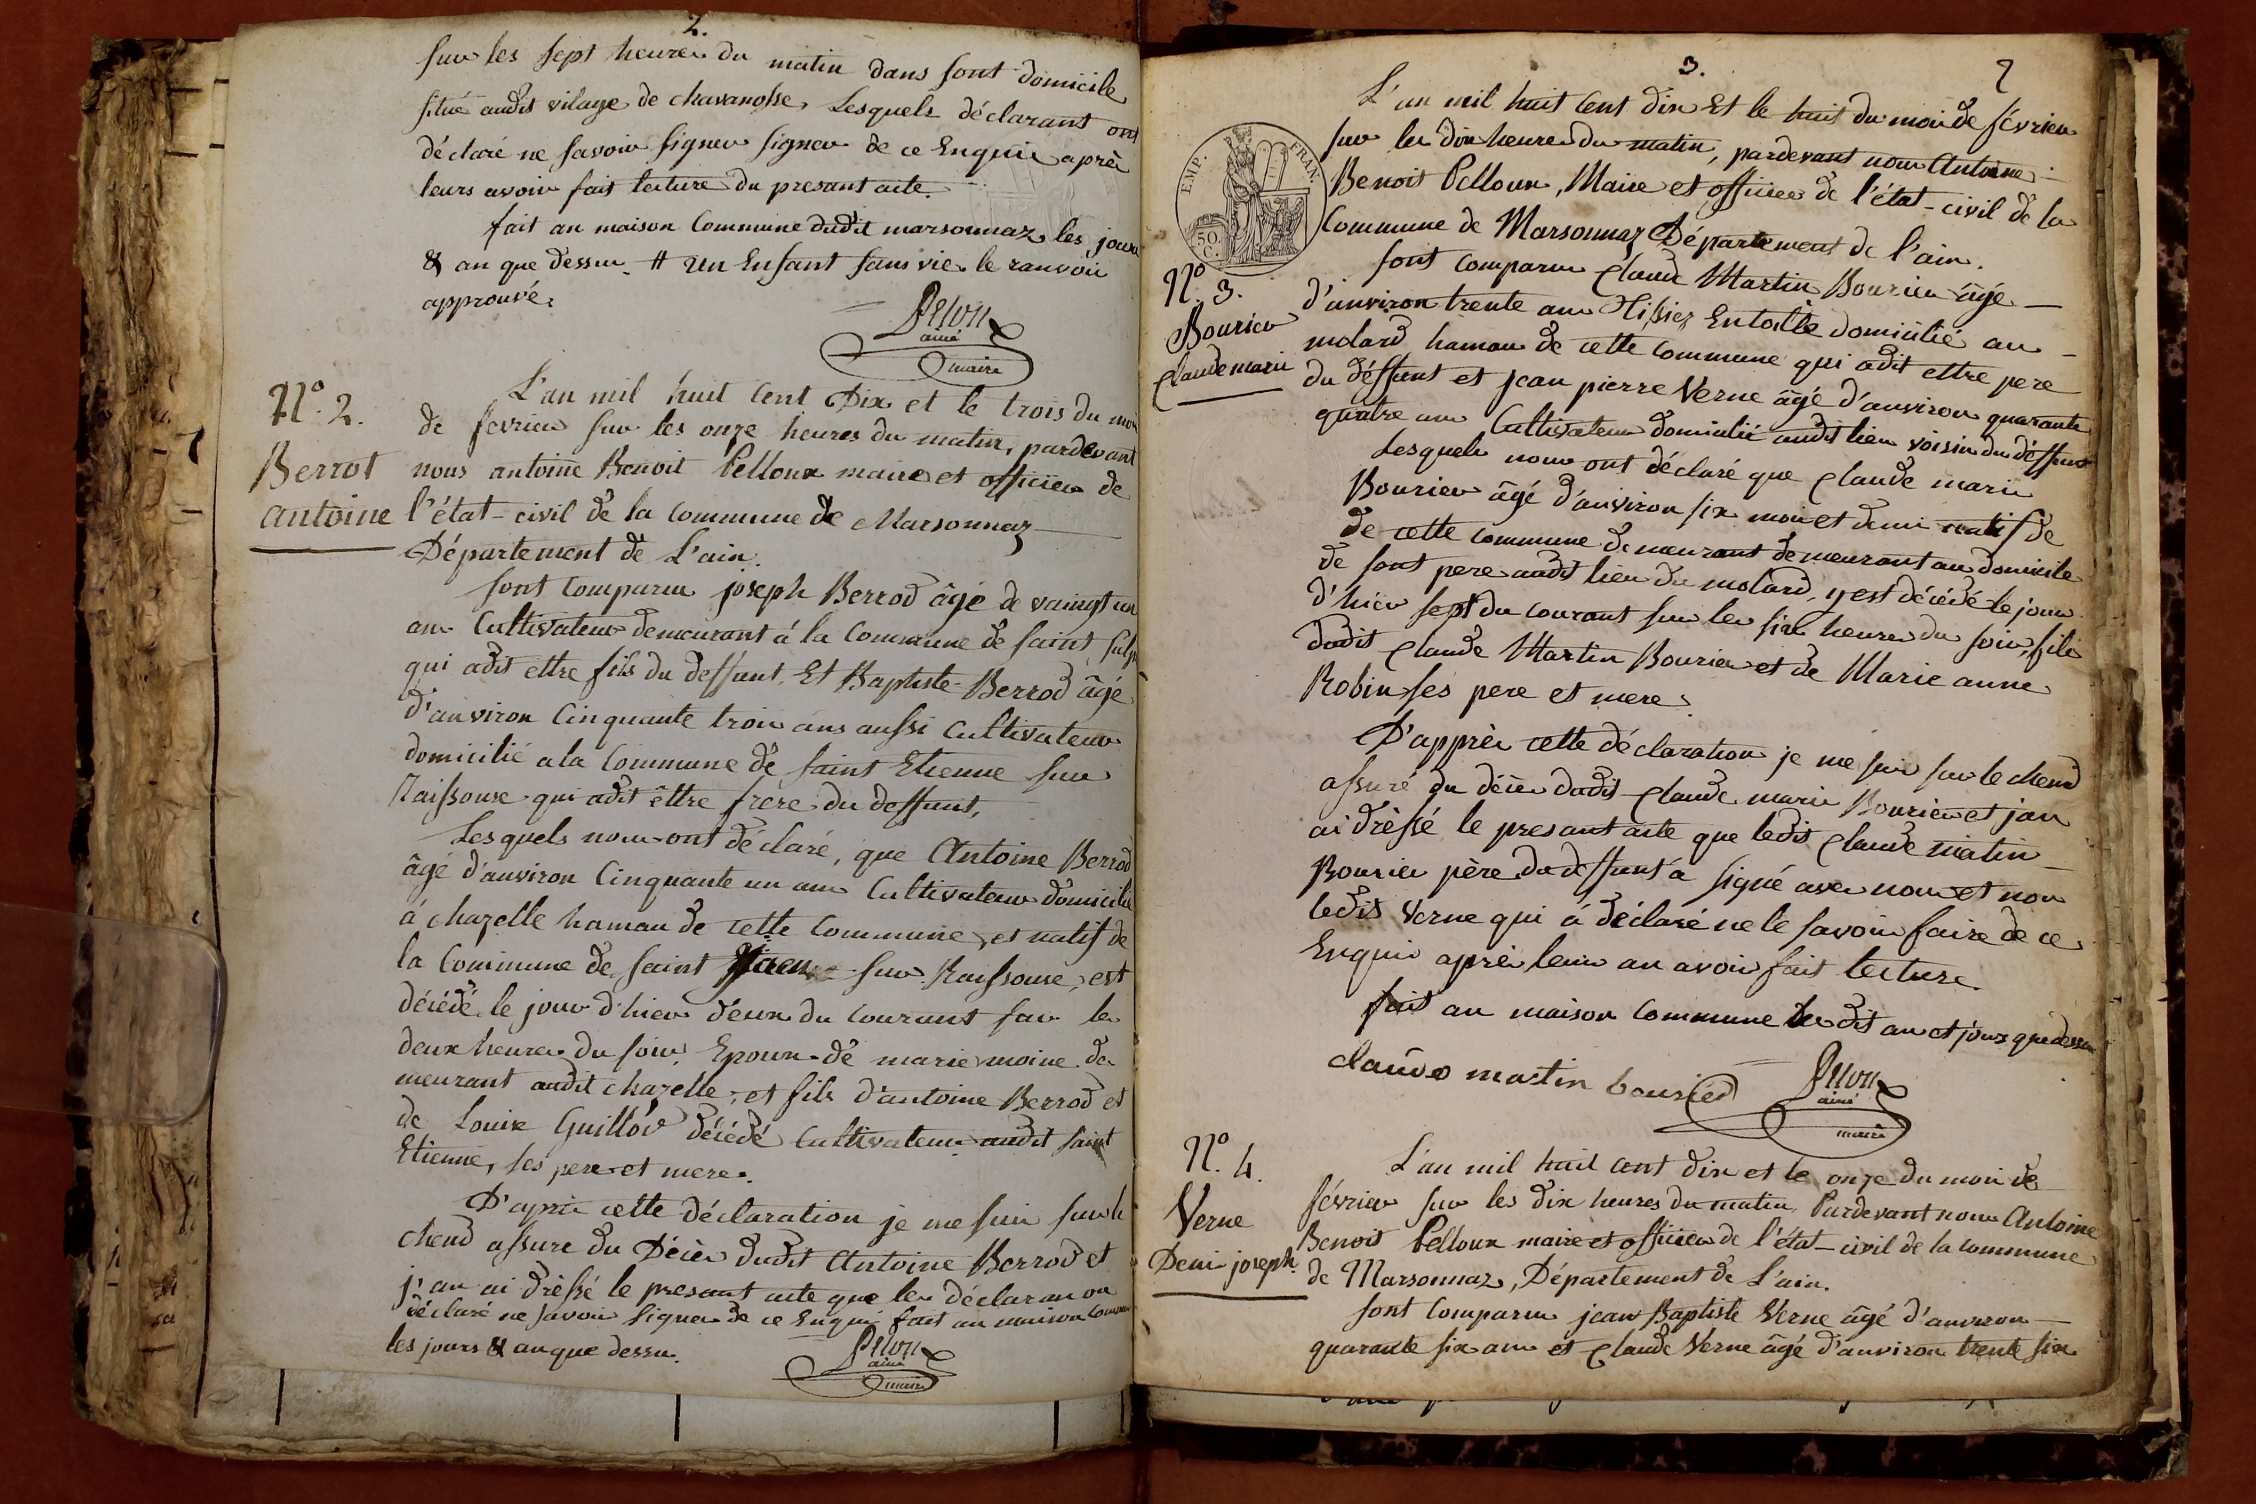 2.
sur les sept heures du matin dans sont domicile
situé audit vilage de chavanosse, Lesquels déclarant ont
déclaré ne savoir signer signer de ce Enquis après
leurs avoir fait lecture du presant acte.
fait an maison Commune dudit marsonnaz les jours
& an que dessu. # un Enfant sans vie le ranvoi
approuvé.
Pelou
ainé
maire
N.° 2.
Berrot
antoine
L'an mil huit Cent Dix et le trois du moi
de fevrier sur les onze heures du matin, pardevant
nous antoine Benoit Pelloux maire et officier de
l'état-civil de la commune de Marsonnaz
Département de L'ain.
sont comparu joseph Berrod âgé de vaingt un
ans Cultivateur demeurant á la Commune de saint sulp
qui adit ettre fils du deffunt, Et Baptiste Berrod âgé
d'anviron Cinquante trois ans aussi Cultivateur
domicilié a la Commune de saint Etienne sur
Raissouse qui adit êttre frère du deffunt,
Lesquels nous ont déclaré, que Antoine Berrod
âgé d'anviron Cinquante un ans Cultivateur domicilié
á chazelle hamau de cette Commune, et natif de
la Commune de saint sur Raissouse, est
décédé le jour d'hier deux du courant sur les
deux heures du soir, Epoux de marie moine de
meurant audit chazelle, et fils d'antoine Berrod et
de Louise Guillod décédé Cultivateur audit saint
Etienne, ses pere et mere.
D'après cette déclaration je me suis sur le
chend assure du Décès dudit Antoine Berrod et
j'an ai drèssé le presant acte que les déclaran on
déclaré ne savoir signer de ce Enqui fait an maison Commun
les jours & an que dessu.
Pelou
ainé
maire
3.
2
EMP. FRAN.
50.
C.
L'an mil huit Cent dix Et le huit du moi de février
sur les dix heures du matin, pardevant nous Antoine
Benoit Pelloux, Maire et officier de l'état-civil de la
Commune de Marsonnaz Département de l'ain.
N.° 3.
Bourier
Claude marie
sont comparu Claude Martin Bourier âgé
d'anviron trente ans Tissier Entoille domicilié au
molard hamau de cette Commune qui adit ettre pere
du déffunt et jean pierre Verne âgé d'anviron quarante
quatre ans Cultivateur domicilié audit lieu voisin du déffunt
Lesquels nous ont déclaré que Claude marie
Bourier âgé d'anviron six mois et demi natif de
de cette commune demeurant demeurant au domicile
de sont pere audit lieu du molard, y est décédé le jour
d'hier sept du courant sur les six heures du soir, fils
dudit Claude Martin Bourier et de Marie anne
Robin ses pere et mere.
D'apprès cette déclaration je me suis sur le chend
assuré du décès dudit Claude marie Bourier et jan
ai drèssé le presant acte que ledit Claude matin
Bourier père du deffunt á signé avec nous et non
ledit Verne qui á déclaré ne le savoir faire de ce
Enquis après leur an avoir fait lecture.
fait an maison Commune les dit an et jour que dessu
claude martin bourier
Pelou
ainé
maire
N.° 4.
Verne
Deni joseph.
L'an mil huit cent dix et le onze du moi de
février sur les dix heures du matin Pardevant nous Antoine
Benoit Pelloux maire et officier de l'état-civil de la Commune
de Marsonnaz, Département de L'ain.
sont comparu jean Baptiste Verne âgé d'anviron
quarante six ans et Claude Verne âgé d'anviron trente six